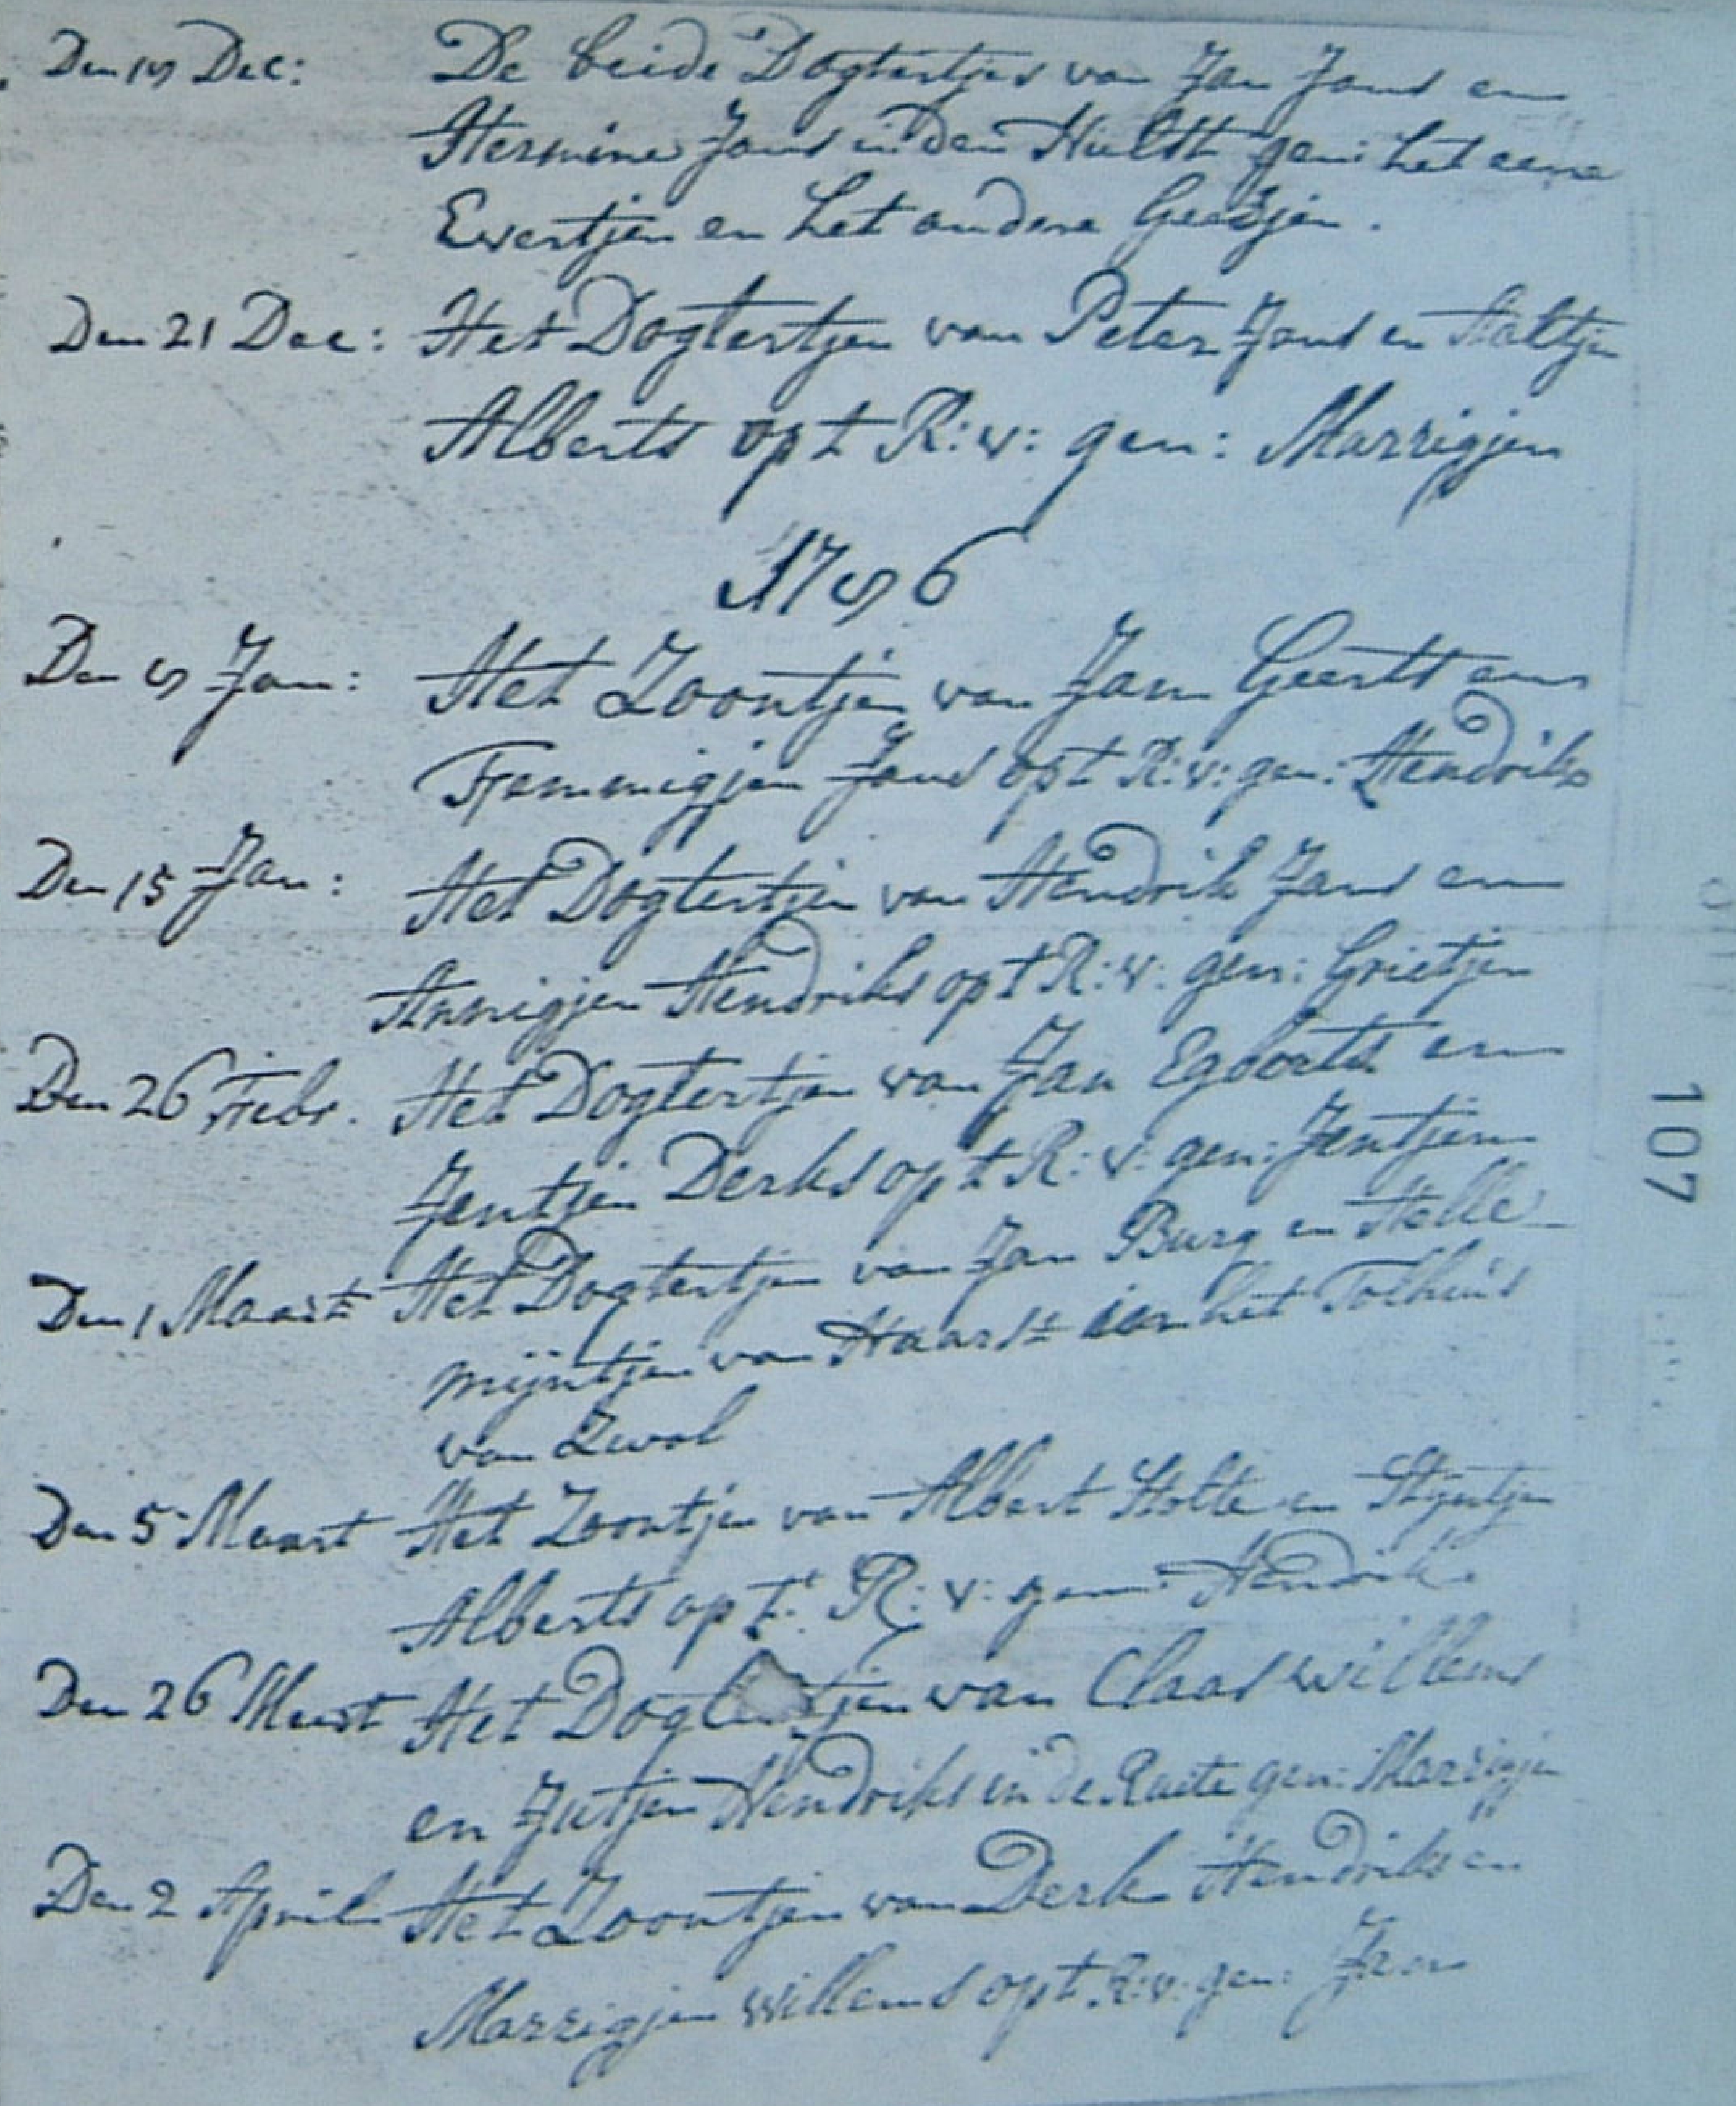 Den 19 Dec: De beide Dogtertjes van Jan Jans en
Hermine Jans in den Hulst gen: het eene
Evertjen en het andere Geesjen.
Den 21 Dec: Het Dogtertjen van Peter Jans en Aaltjen
Alberts opt R:v: gen: Marrigjen
1796
Den 9 Jan: Het Zoontjen van Jan Geerts en
Femmigjen Jans opt R:v: gen: Hendrik
Den 15 Jan: Het Dogtertjen van Hendrik Jans en
Annigjen Hendriks opt R:v: gen: Grietjen
Den 26 Febr. Het Dogtertjen van Jan Egberts en
Jentjen Derks opt R:v: gen: Jentjen
Den 1 Maart Het Dogtertjen van Jan Burg en Helle
mijntjen van Haarst het Tolhuis
van Zwol
Den 5 Maart Het Zoontjen van Albert Holte en Stijntjen
Alberts opt R:v: gen: Hendrik
Den 26 Maart Het Dogtertjen van Claas Willems
en Jutjen Hendriks in de Ruite gen: Marrigjen
Den 2 April Het Zoontjen van Derk Hendriks en
Marrigjen Willems opt R:v: gen: Jan
107